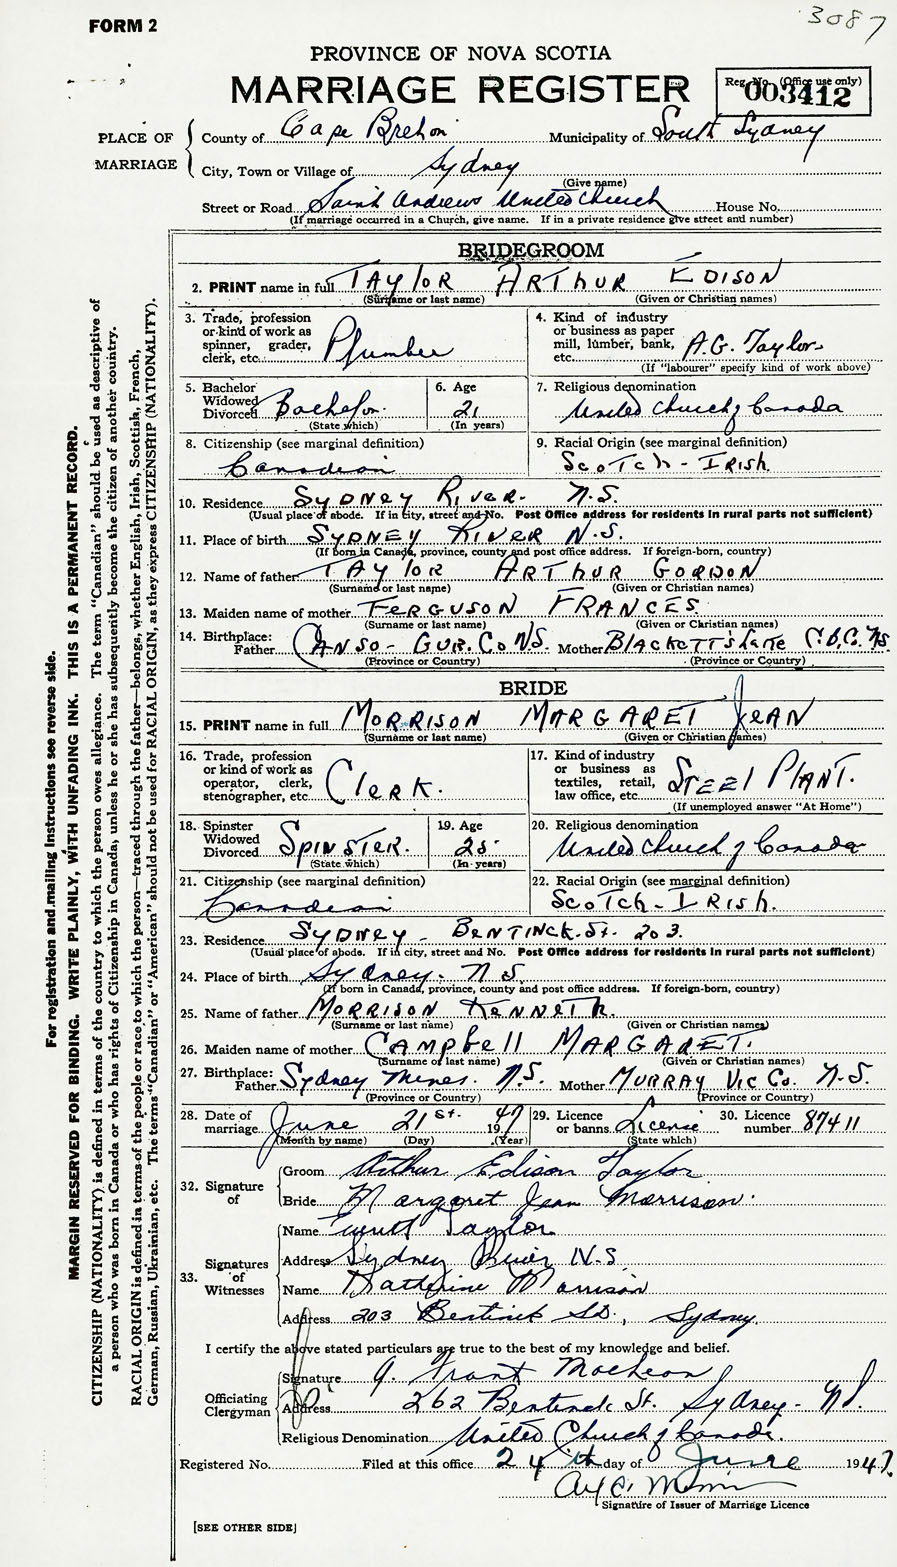 3087
FORM 2
PROVINCE OF NOVA SCOTIA
MARRIAGE REGISTER
Reg. No. (Office use only)
003412
PLACE OF MARRIAGE
County of Cape Breton Municipality of South Sydney
City, Town or Village of Sydney
(Give name)
Street or Road Saint Andrews United Church House No.
(If marriage occurred in a Church, give name. If in a private residence give street and number)
BRIDEGROOM
2. PRINT name in full TAYLOR ARTHUR EDISON
(Surname or last name) (Given or Christian names)
3. Trade, profession or kind of work as spinner, grader, clerk, etc. Plumber
4. Kind of industry or business as paper mill, lumber, bank, etc. A.G. Taylor
(If "labourer" specify kind of work above)
5. Bachelor Widowed Divorced Bachelor
(State which)
6. Age 21
(In years)
7. Religious denomination United Church of Canada
8. Citizenship (see marginal definition) Canadian
9. Racial Origin (see marginal definition) Scotch - Irish
10. Residence SYDNEY RIVER - N.S.
(Usual place of abode. If in city, street and No. Post Office address for residents in rural parts not sufficient)
11. Place of birth SYDNEY RIVER N.S.
(If born in Canada, province, county and post office address. If foreign-born, country)
12. Name of father TAYLOR ARTHUR GORDON
(Surname or last name) (Given or Christian names)
13. Maiden name of mother FERGUSON FRANCES
(Surname or last name) (Given or Christian names)
14. Birthplace: Father CANSO - GUR. Co NS. Mother BLACKETT'S Lake C.B.C. N.S.
(Province or Country) (Province or Country)
BRIDE
15. PRINT name in full MORRISON MARGARET JEAN
(Surname or last name) (Given or Christian names)
16. Trade, profession or kind of work as operator, clerk, stenographer, etc. Clerk.
17. Kind of industry or business as textiles, retail, law office, etc. STEEL PLANT.
(If unemployed answer "At Home")
18. Spinster Widowed Divorced SPINSTER.
(State which)
19. Age 25
(In years)
20. Religious denomination United Church of Canada
21. Citizenship (see marginal definition) Canadian
22. Racial Origin (see marginal definition) Scotch - Irish.
23. Residence SYDNEY - BENTINCK. St. 203.
(Usual place of abode. If in city, street and No. Post Office address for residents in rural parts not sufficient)
24. Place of birth Sydney - N.S.
(If born in Canada, province, county and post office address. If foreign-born, country)
25. Name of father MORRISON KENNETH.
(Surname or last name) (Given or Christian names)
26. Maiden name of mother CAMPBELL MARGARET.
(Surname or last name) (Given or Christian names)
27. Birthplace: Father Sydney Mines. N.S. Mother MURRAY VIC Co. N.S.
(Province or Country) (Province or Country)
28. Date of marriage June 21st. 1947
(Month by name) (Day) (Year)
29. Licence or banns License
(State which)
30. Licence number 87411
32. Signature of
Groom Arthur Edison Taylor
Bride Margaret Jean Morrison.
33. Signatures of Witnesses
Name Taylor
Address Sydney River N.S.
Name Katherine Morrison
Address 203 Bentinck St., Sydney.
I certify the above stated particulars are true to the best of my knowledge and belief.
Officiating Clergyman
Signature Grant MacLeod
Address 262 Bentinck St. Sydney - N.S.
Religious Denomination United Church of Canada.
Registered No. Filed at this office 24th day of June 1947.
Signature of Issuer of Marriage Licence
[SEE OTHER SIDE]
For registration and mailing instructions see reverse side.
MARGIN RESERVED FOR BINDING. WRITE PLAINLY, WITH UNFADING INK. THIS IS A PERMANENT RECORD.
CITIZENSHIP (NATIONALITY) is defined in terms of the country to which the person owes allegiance. The term "Canadian" should be used as descriptive of
a person who was born in Canada or who has rights of Citizenship in Canada, unless he or she has subsequently become the citizen of another country.
RACIAL ORIGIN is defined in terms of the people or race to which the person—traced through the father—belongs, whether English, Irish, Scottish, French,
German, Russian, Ukrainian, etc. The terms "Canadian" or "American" should not be used for RACIAL ORIGIN, as they express CITIZENSHIP (NATIONALITY).